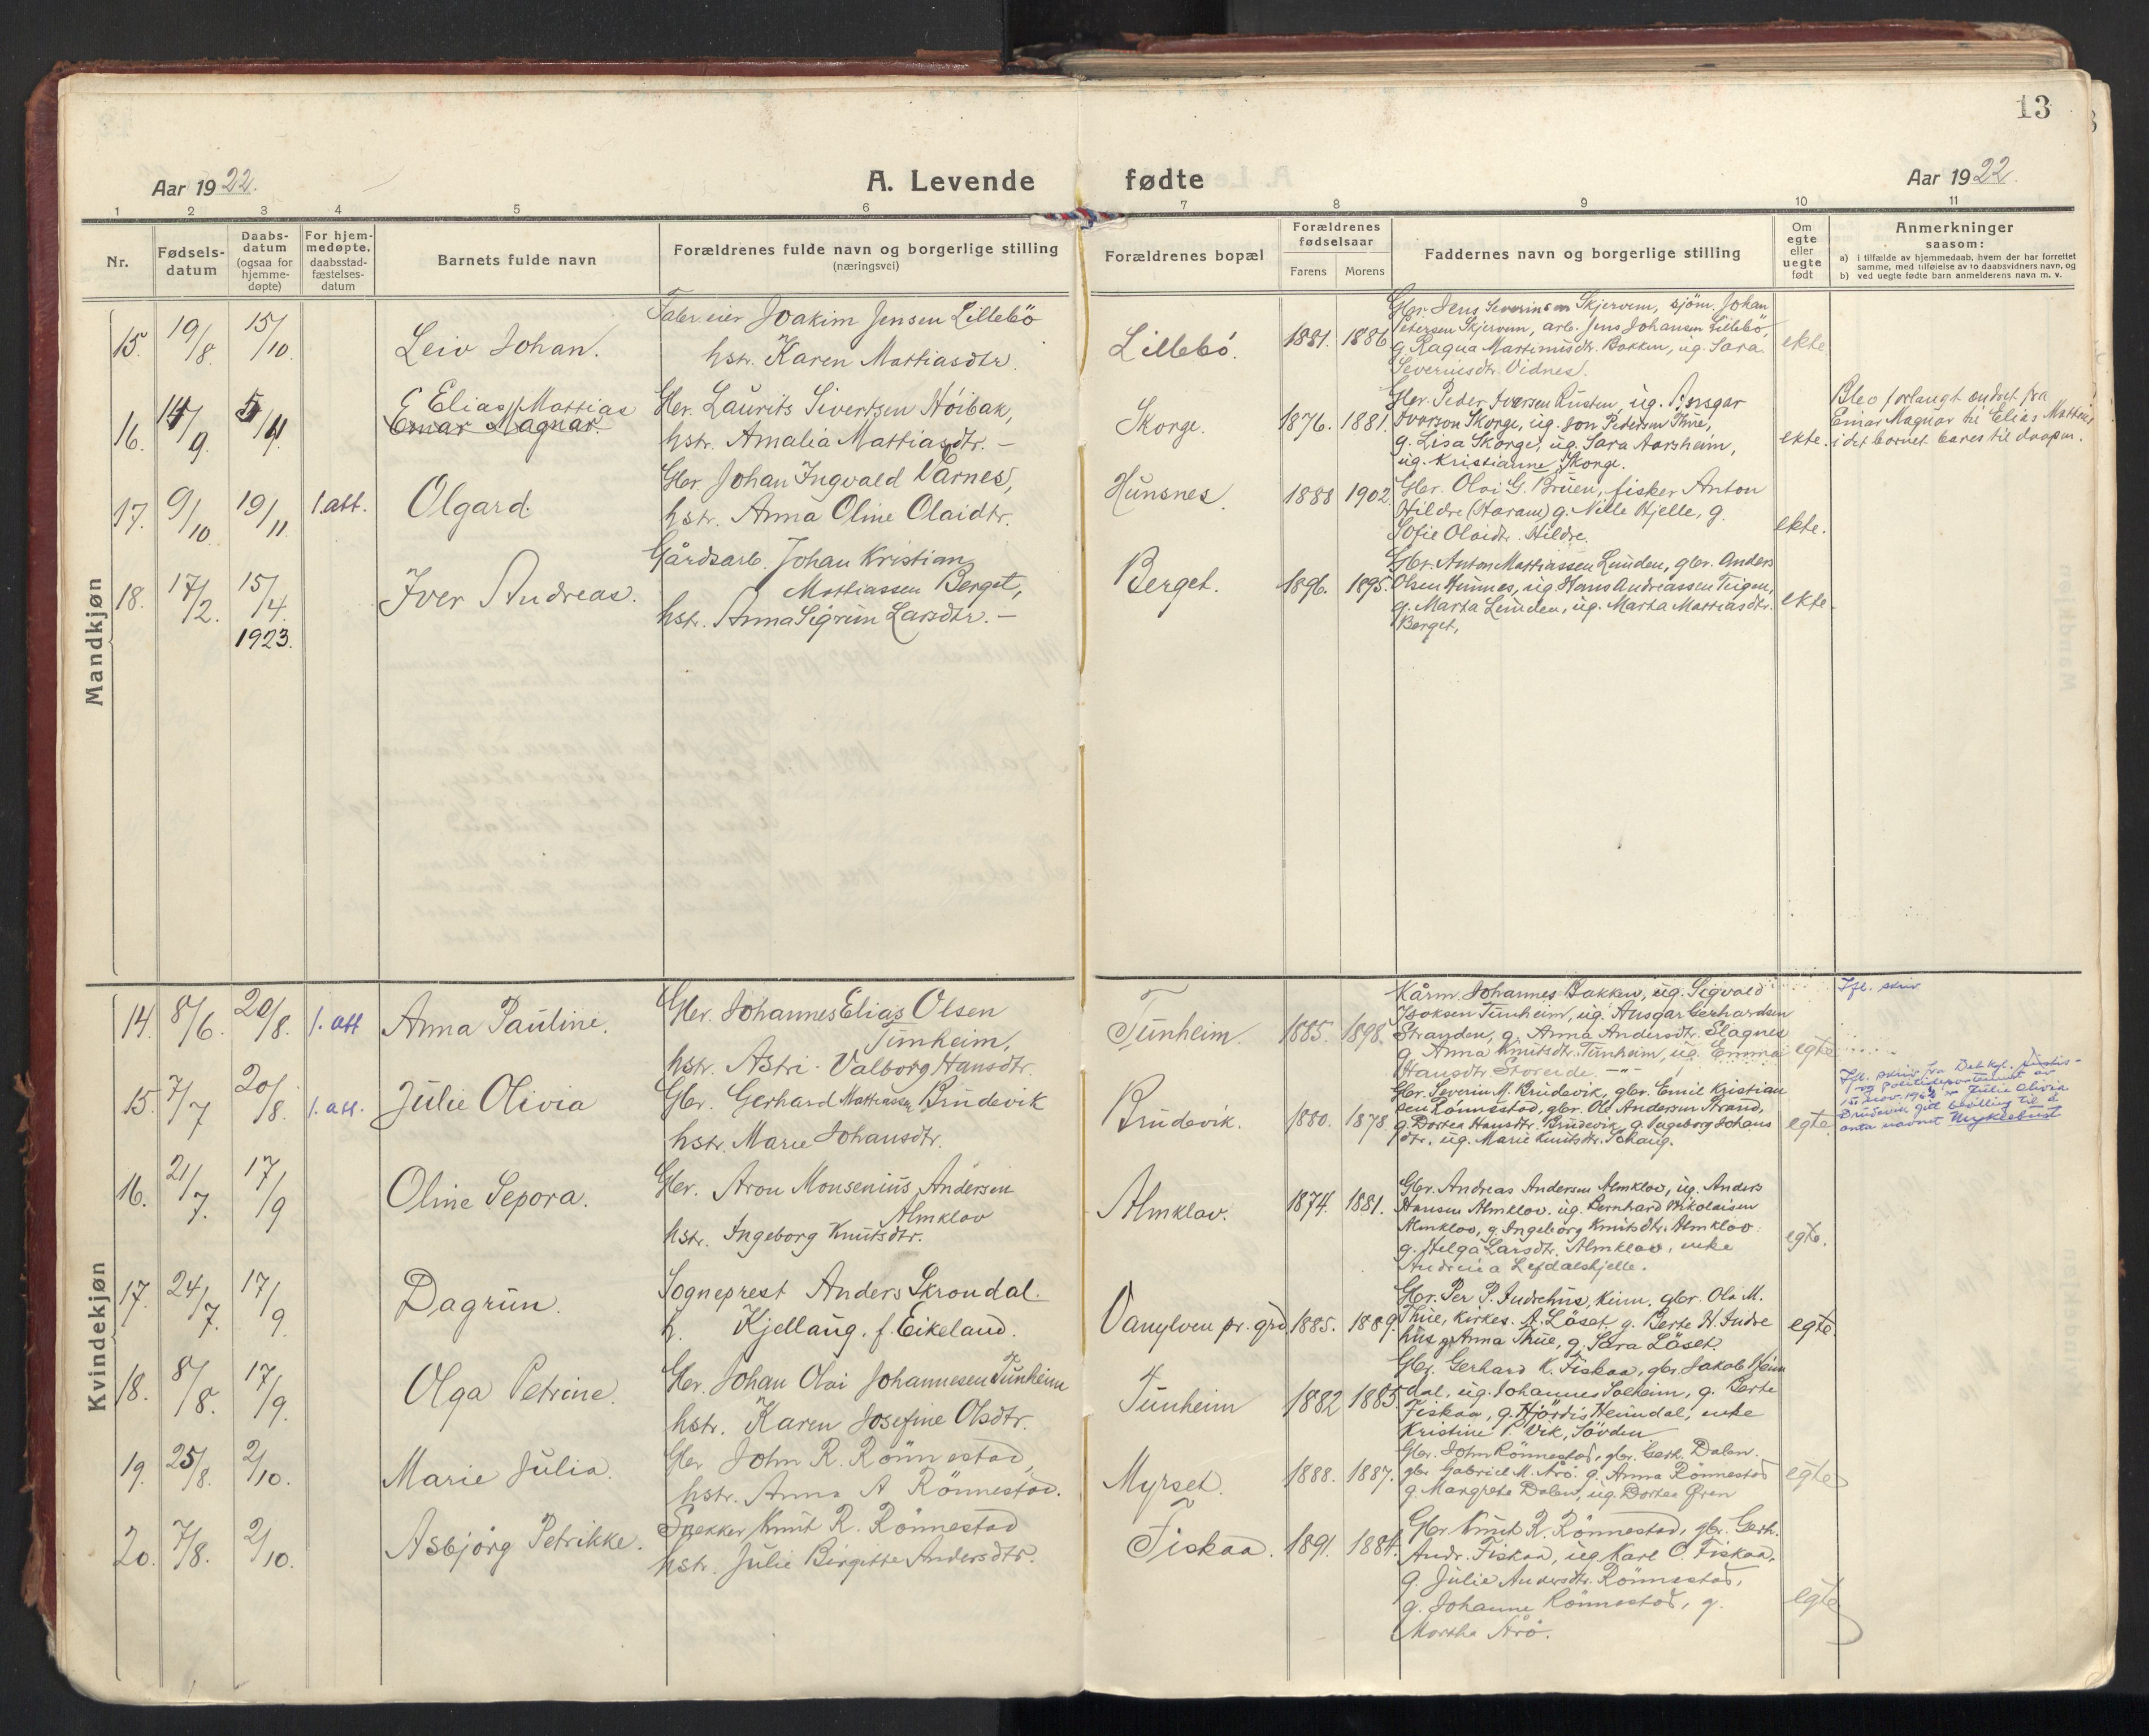 13
Aar 1922.
A. Levende fødte
Aar 1922.
1 2 3 4 5 6 7 8 9 10 11
Nr.
Fødsels-
datum
Daabs-
datum
(ogsaa for
hjemme-
døpte)
For hjem-
medøpte,
daabsstad-
fæstelses-
datum
Barnets fulde navn
Forældrenes fulde navn og borgerlige stilling
(næringsvei)
Forældrenes bopæl
Forældrenes
fødselsaar
Farens Morens
Faddernes navn og borgerlige stilling
Om
egte
eller
uegte
født
Anmerkninger
saasom:
a) i tilfælde av hjemmedaab, hvem der har forrettet
samme, med tilføielse av to daabsvidners navn, og
b) ved uegte fødte barn anmelderens navn m. v.
Mandkjøn
15. 19/8 15/10
Leiv Johan.
Joakim Jensen Lillebö
hstr. Karen Mattiasdtr.
Lillebö.
1881. 1886
Gbr. Jens Severinsen Skjervem, sjöm. Johan
Petersen Skjervem, arb. Jens Johansen Lillebö,
g. Ragna Martinusdtr. Bakken, ug. Sara
Severinsdtr. Vidnes.
ekte
16. 14/9. 5/11.
Elias Mattias
Einar Magnar.
Gbr. Laurits Sivertsen Höibak,
hstr. Amalia Mattiasdtr. –
Skorge.
1876. 1881.
Gbr. Peder Iversen Rusten, ug. Ansgar
Iverson Skorge, ug. Jon Pedersen Thue,
g. Lisa Skorge, ug. Sara Aarsheim,
ug. Kristianne Skorge.
ekte.
Blev forlangt endret fra
Einar Magnar til Elias Mattias
i det barnet bares til daapen.
17. 9/10. 19/11 1.att.
Olgard.
Gbr. Johan Ingvald Varnes,
hstr. Anna Oline Olaidtr.
Hunsnes.
1888 1902.
Gbr. Olai G. Bruen, fisker Anton
Hildre (Haram) g. Nille Hjelle, g.
Sofie Olaidtr. Hildre.
ekte.
18. 17/2. 15/4.
1923.
Iver Andreas.
Gårdsarb. Johan Kristian
Mattiassen Berget,
hstr. Anna Sigrun Larsdtr. –
Berget.
1896. 1895.
Gbr. Anton Mattiassen Lunden, gbr. Anders
Olsen Hunnes, ug. Hans Andreassen Teigen,
g. Marta Lunden, ug. Marta Mattiasdtr.
Berget,
ekte.
Kvindekjøn
14. 8/6. 20/8. 1. att
Anna Pauline.
Gbr. Johannes Elias Olsen
Tunheim,
hstr. Astri Valborg Hansdtr.
Tunheim.
1885. 1898.
Kårm. Johannes Bakken, ug. Sigvald
Isaksen Tunheim, ug. Ansgar Gerhardsen
Stranden, g. Anna Andersdtr. Slagnes
g. Anna Knutsdtr. Tunheim, ug. Emma
Hansdtr. Storeide. –"–
egte
Ifl. skriv
15. 7/7 20/8. 1. att.
Julie Olivia
Gbr. Gerhard Mattiassen Brudevik
hstr. Marie Johansdtr.
Brudevik.
1880. 1878.
Gbr. Severin M. Brudevik, gbr. Emil Kristian
sen Rönnestad, gbr. Ole Andersen Strand,
g. Dortea Hansdtr. Brudevik, g. Ingeborg Johans
dtr, ug. Marie Knutsdtr. Sohaug.
egte.
Ifl. skriv fra Det kgl. Justis-
og politidepartement av
15. nov. 194 er Julie Olivia
Brudevik gitt bevilling til å
anta navnet Myklebust
16. 21/7. 17/9
Oline Sepora.
Gbr. Aron Monsenius Andersen
Almklov
hstr. Ingeborg Knutsdtr.
Almklov.
1874. 1881.
Gbr. Andreas Andersen Almklov, ug. Anders
Hansen Almklov, ug. Bernhard Nikolaisen
Almklov, g. Ingeborg Knutsdtr. Almklov
g. Helga Larsdtr. Almklov, enke
Andrina Lefdalshjelle.
egte.
17. 24/7. 17/9.
Dagrun.
Sogneprest Anders Skrondal.
h. Kjellaug, f. Eikeland.
Vanylven pr. grd
1885. 1889.
Gbr. Per P. Indrehus, Kinn, gbr. Ola M.
Thue, kirkes. A. Löset, g. Berte H. Indre
hus g. Anna Thue, g. Sara Löset.
egte.
18. 8/8. 17/9.
Olga Petrine.
Gbr. Johan Olai Johannesen Tunheim
hstr. Karen Josefine Olsdtr.
Tunheim
1882 1885
Gbr. Gerhard K. Fiskaa, gbr. Jakob Heim
dal, ug. Johannes Solheim, g. Berte
Fiskaa, g. Hjördis Heimdal, enke
Kristine P. Vik, Sövden
19. 25/8. 2/10.
Marie Julia.
Gbr John R. Rönnestad,
hstr. Anna A Rönnestad.
Myrset.
1888. 1887.
Gbr. John Rönnestad, gbr. Gerh. Dalen.
gbr Gabriel M. Årö. g. Anna Rönnestad
g. Margrete Dalen, ug. Dortea Øren
egte
20. 7/8. 2/10.
Asbjörg Petrikke.
Snekker Knut R. Rönnestad
hstr. Julie Birgitte Andersdtr.
Fiskaa.
1891. 1884.
Gbr. Knut R. Rönnestad, gbr. Gerh.
Andr. Fiskaa, ug Karl O. Fiskaa,
g. Julie Andersdtr. Rönnestad,
g. Johanne Rönnestad, g.
Martha Årö.
egte